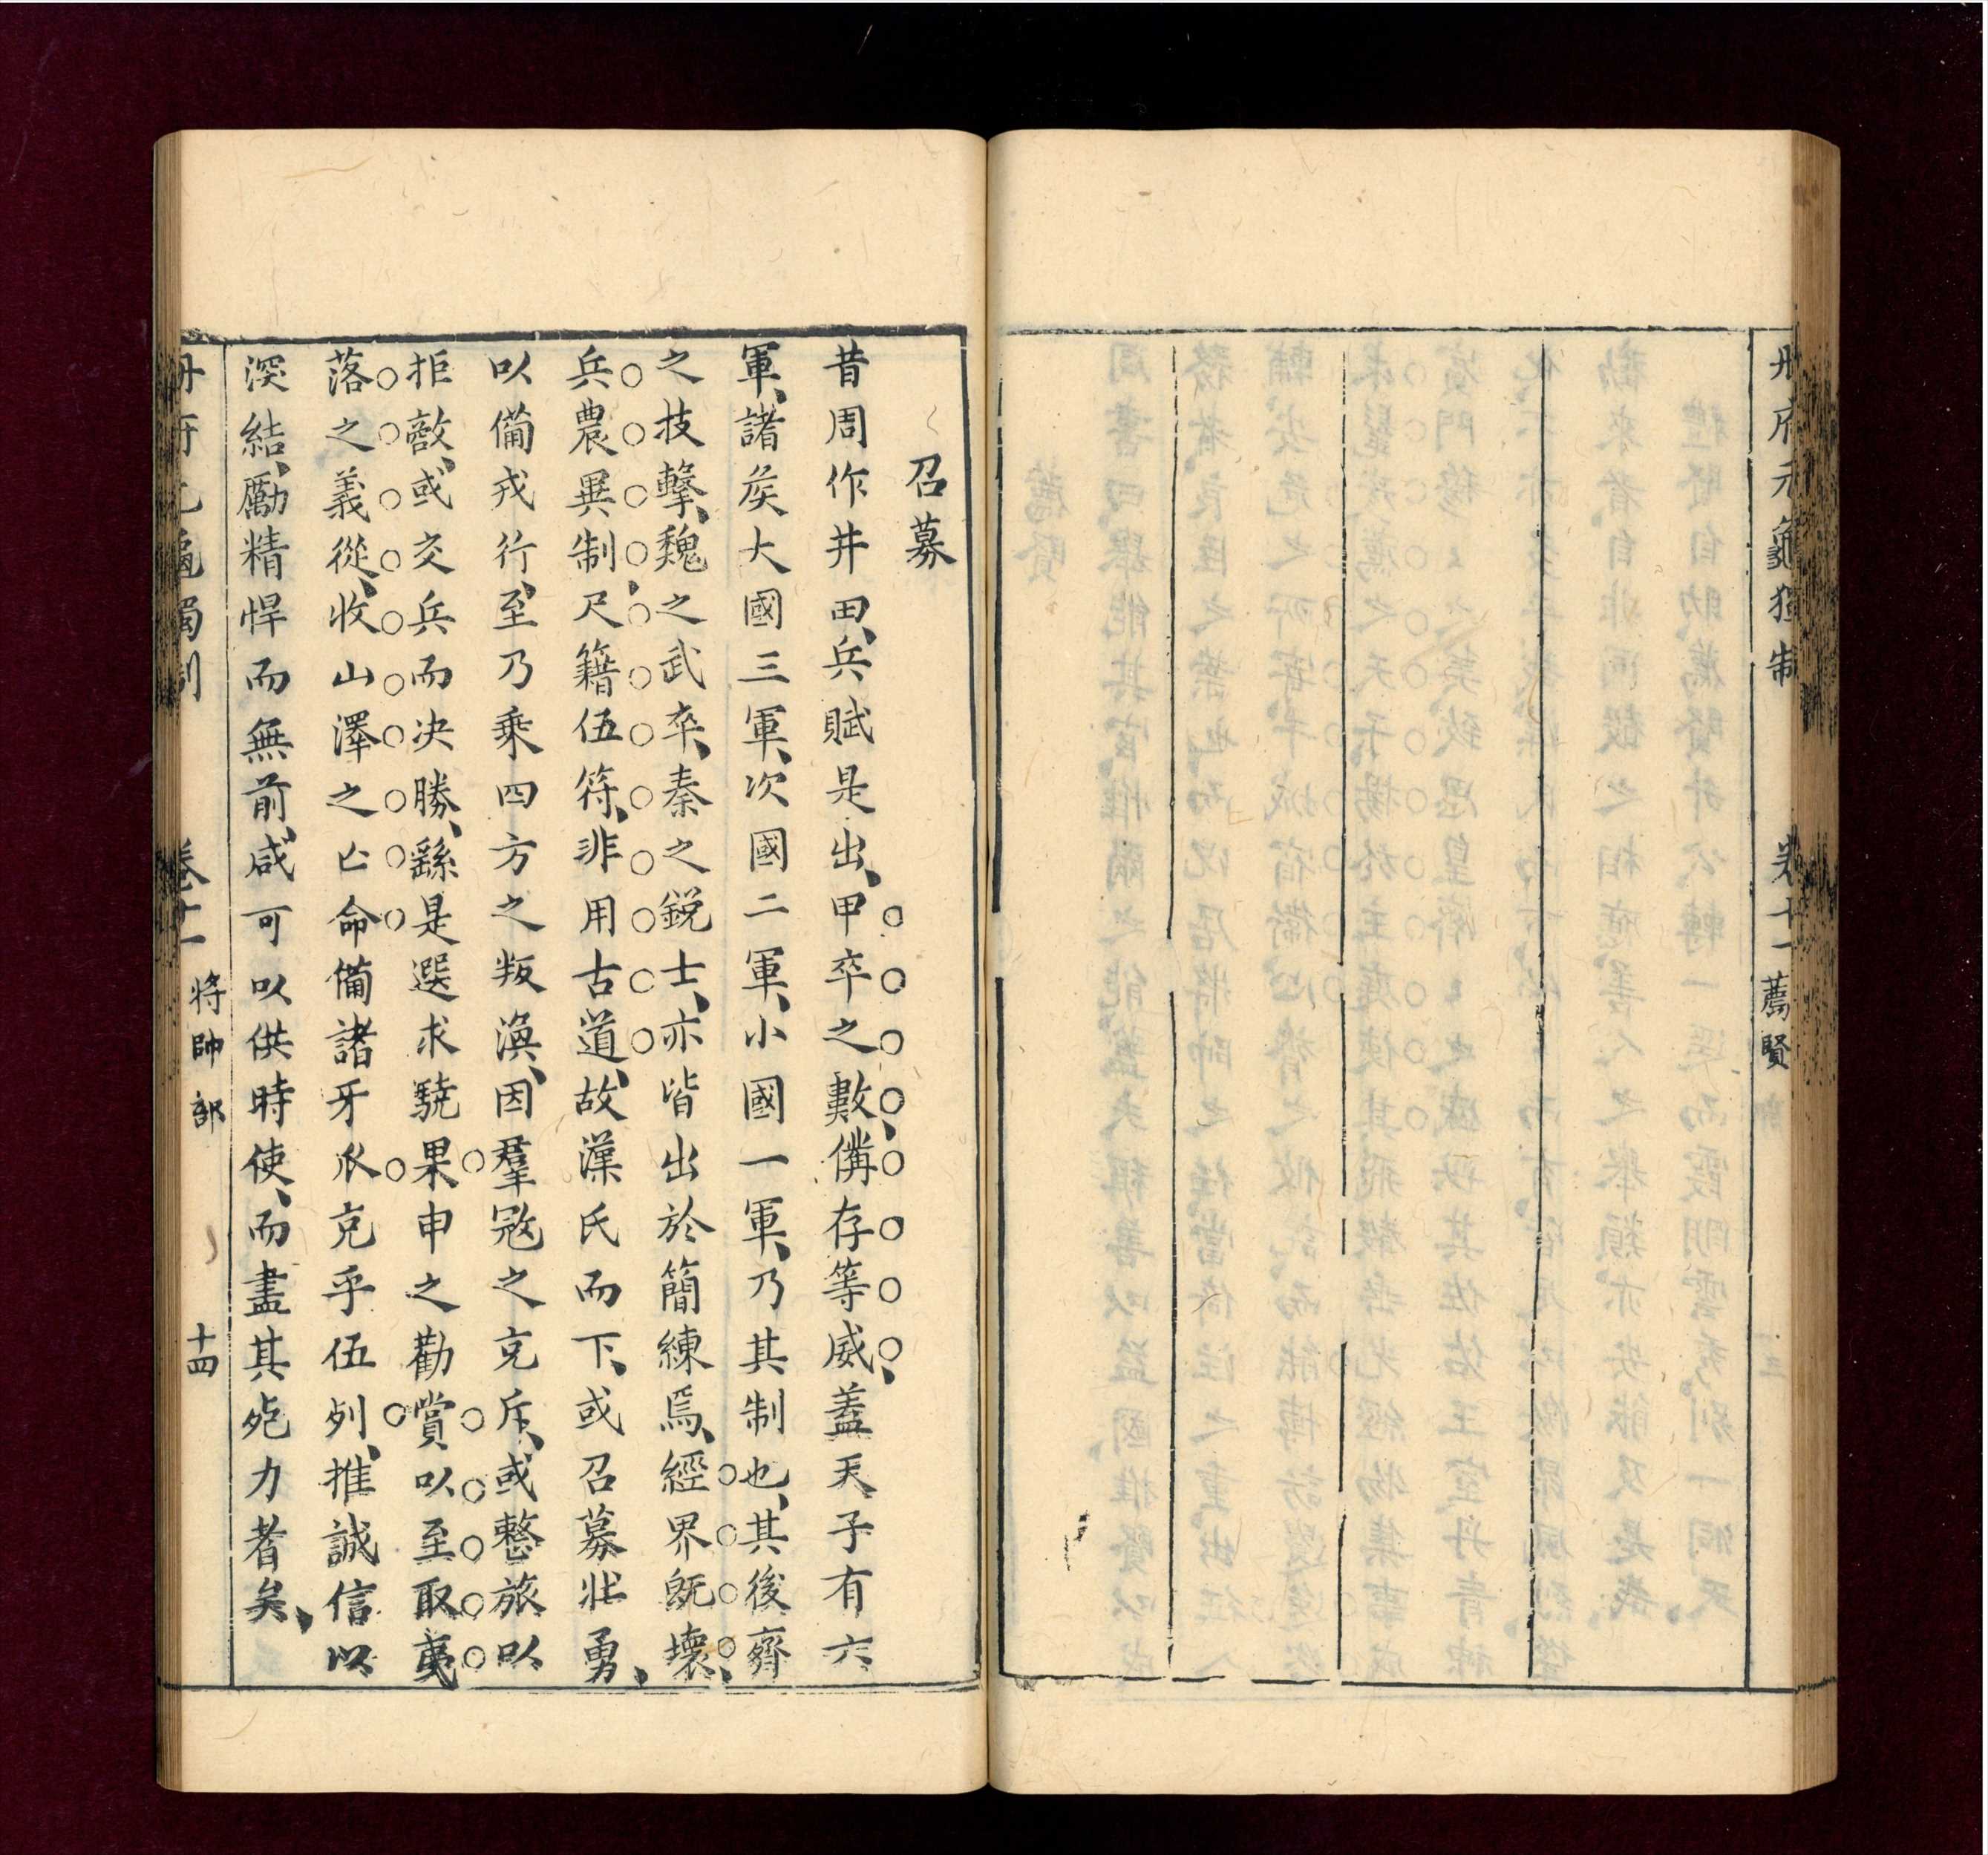 冊府元龜獨制
卷十一
薦賢
召募
昔周作井田、兵賦是出、甲卒之數、備存等威、蓋天子有六
軍、諸矦大國三軍、次國二軍、小國一軍、乃其制也、其後齊
之技擊、魏之武卒、秦之銳士、亦皆出於簡練焉、經界旣壞、
兵農異制、尺籍伍符、非用古道、故漢氏而下、或召募壯勇、
以備戎行、至乃乘四方之叛渙、因羣寇之充斥、或整旅以
拒敵、或交兵而决勝、繇是選求驍果申之勸賞以至取夷
落之義從、收山澤之亡命備諸牙爪充乎伍列、推誠信以
深結、勵精悍而無前、咸可以供時使、而盡其死力者矣、
冊府元龜獨制
卷十一
將帥部
十四